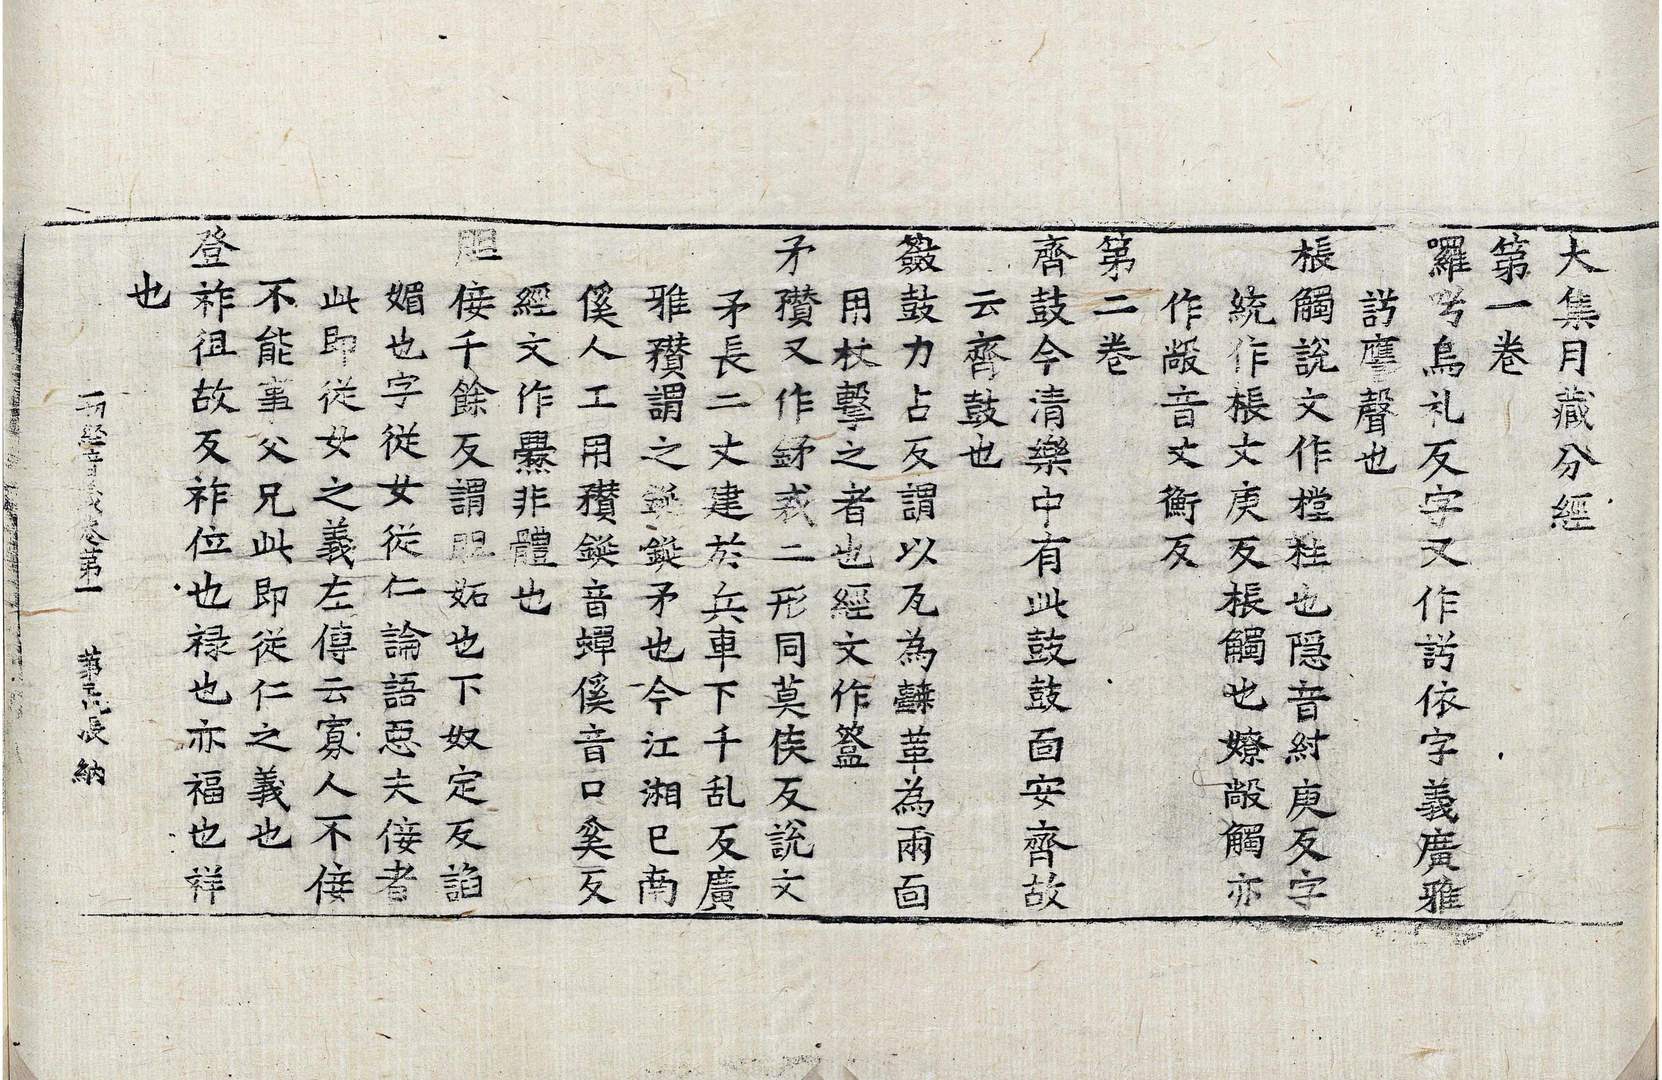 大集月藏分經
第一卷
囉兮烏礼反字又作詩依字義廣雅
詩譍聲也
棖觸說文作樘柱也隱音紂庚反字
統作棖丈庚反棖觸也嫽敞觸亦
作敞音丈衡反
第二卷
齊鼓今清樂中有此鼓鼓面安齊故
云齊鼓也
鼓力占反謂以瓦為𪎭革為兩面
用杖擊之者也經文作簦
矛穳又作鉾𢦧二形同莫侯反說文
矛長二丈建於兵車下千乱反廣
雅穳謂之鋋鋋矛也今江湘巳南
傒人工用穳鋋音蟬傒音口奚反
經文作爨非體也
佞千餘反謂妬也下奴定反諂
媚也字從女從仁論語惡夫佞者
此即從女之義左傳云寡人不佞
不能事父兄此即從仁之義也
登祚徂故反祚位也祿也亦福也祥
也
一切經音義卷第一 第張納